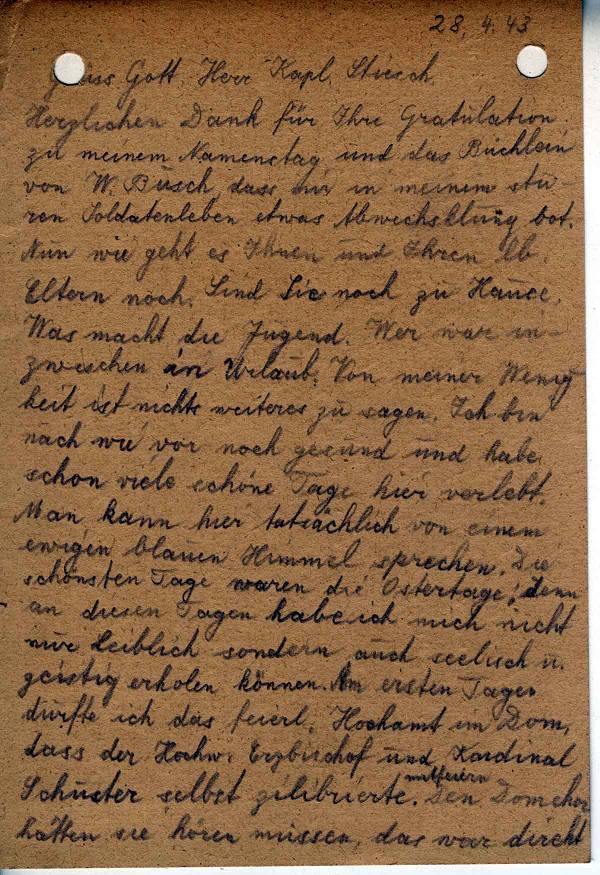 28. 4. 43
Grüss Gott, Herr Kapl. Stiesch.
Herzlichen Dank für Ihre Gratulation
zu meinem Namenstag und das Büchlein
von W. Busch, dass mir in meinem stu-
ren Soldatenleben etwas Abwechslung bot.
Nun wie geht es Ihnen und Ihren lb.
Eltern noch. Sind Sie noch zu Hause.
Was macht die Jugend. Wer war in-
zwischen in Urlaub. Von meiner Wenig
keit ist nichts weiteres zu sagen. Ich bin
nach wie vor noch gesund und habe
schon viele schöne Tage hier verlebt.
Man kann hier tatsächlich von einem
ewigen blauen Himmel sprechen. Die
schönsten Tage waren die Ostertage; denn
an diesen Tagen habe ich mich nicht
nur leiblich sondern auch seelisch u.
geistig erholen können. Am ersten Tage
durfte ich das feierl. Hochamt im Dom,
dass der Hochw. Erzbischof und Kardinal
Schuster selbst zilibrierte. mitfeiern Den Domchor
hätten sie hören müssen, das war direkt